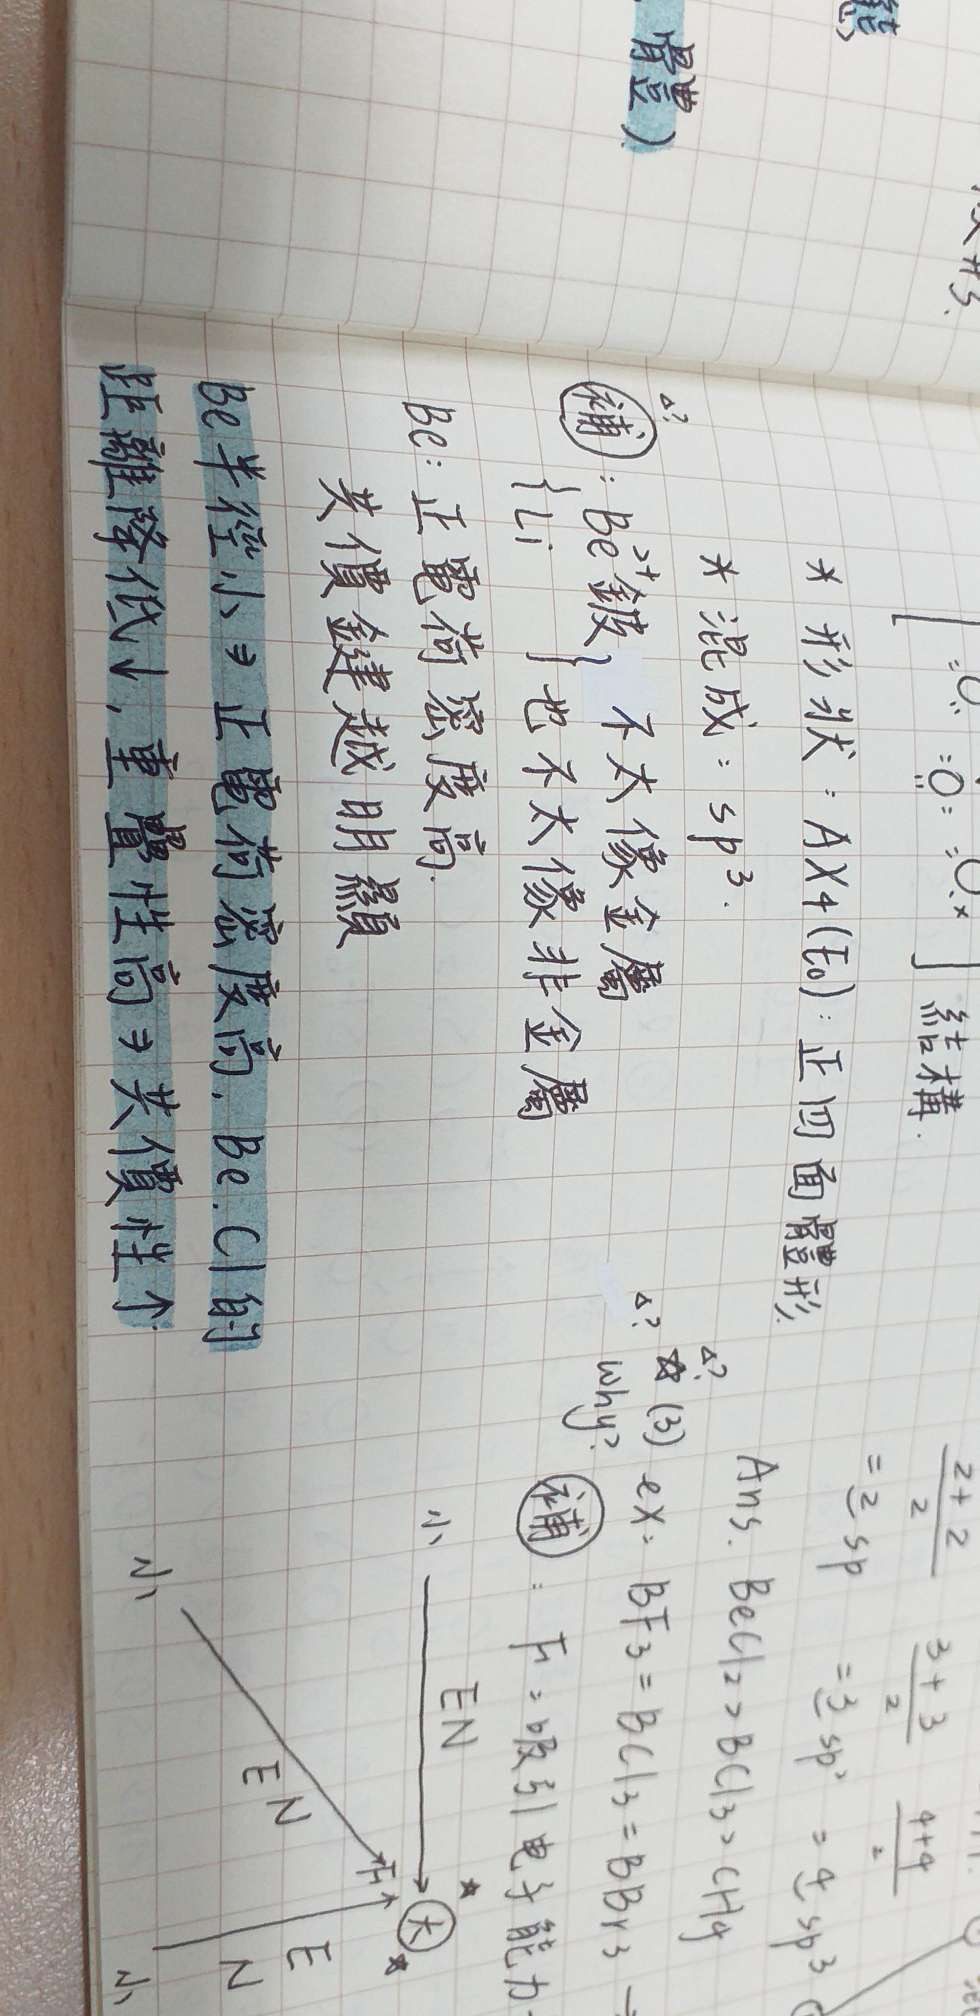 能
體)
:O: :O: :O:
結構.
* 形狀: AX4(E0): 正四面體形
* 混成: sp³.
△?
補 : { Be²⁺鈹 } 不太像金屬
{ Li } 也不太像非金屬
Be: 正電荷密度高.
共價鍵越明顯
Be半徑小⇒正電荷密度高. Be.Cl的
距離降低↓, 重疊性高⇒共價性↑
2+2/2 3+3/2 4+4/2
=2 sp =3 sp² =4 sp3
Ans. BeCl2>BCl3>CH4
△?
☆(3) ex: BF3=BCl3=BBr3→
△?
why?
補 : F: 吸引电子能力
小 EN 大
小 EN F
EN
小